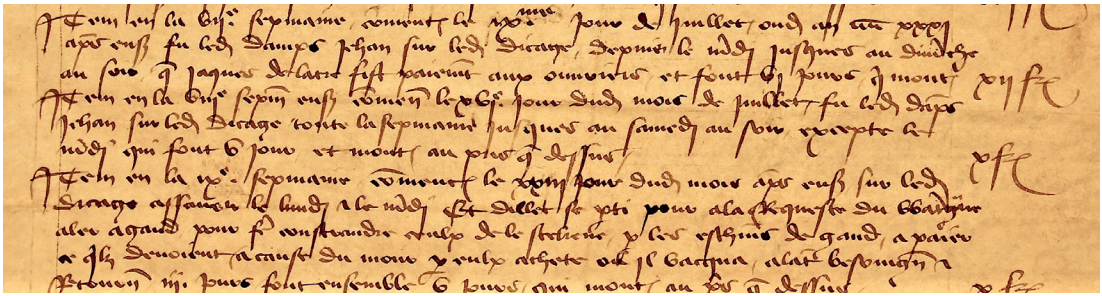 Item en la vije sepmaine co͞mencͣ le ixe jour de juillet oud an cccc xxxj
ap͞s ens͞ fu led damps Jehan sur led dicage depuis le m͞di jusques au dim͞che
au soir q͞ Jaques de latre fist paiem͞t aux ouvriers et font vj jours q͞ mont xij s͞
Item en la viije sepm͞ ens͞ co͞men͞ le xvje jour dud mois de juillet fu led da͞ps
Jehan sur led dicage toute la sepmaine jusques au samedi au soir excepte le
m͞di qui font v jours et mont au pris q͞ dessus x s͞
Item en la ixe sepmaine co͞menc le xxiij jour dud mois ap͞s ens͞ sur led
dicage assavoir le lundi & le m͞di Et dillec se p͞ti pour a la Requeste du
aler a gand pour f͞e constraindre ceulx de le p͞ les eschi͞us de gand a paier
ce q͞lz devoient a cause du mour p͞ eulx achete ou il vacqua alat͞ besoingn͞ &
Retourn͞ iij jours font ensemble v jours qui mont au p͞s q͞ dessus x s͞